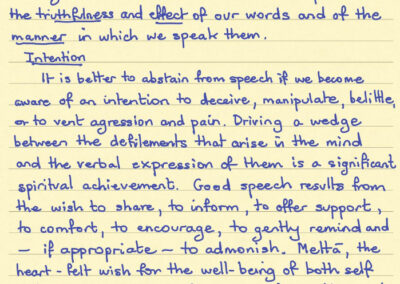 the truthfulness and effect of our words and of the
manner in which we speak them.
Intention
It is better to abstain from speech if we become
aware of an intention to deceive, manipulate, belittle,
or to vent agression and pain. Driving a wedge
between the defilements that arise in the mind
and the verbal expression of them is a significant
spiritual achievement. Good speech results from
the wish to share, to inform, to offer support,
to comfort, to encourage, to gently remind and
– if appropriate – to admonish. Mettā, the
heart-felt wish for the well-being of both self